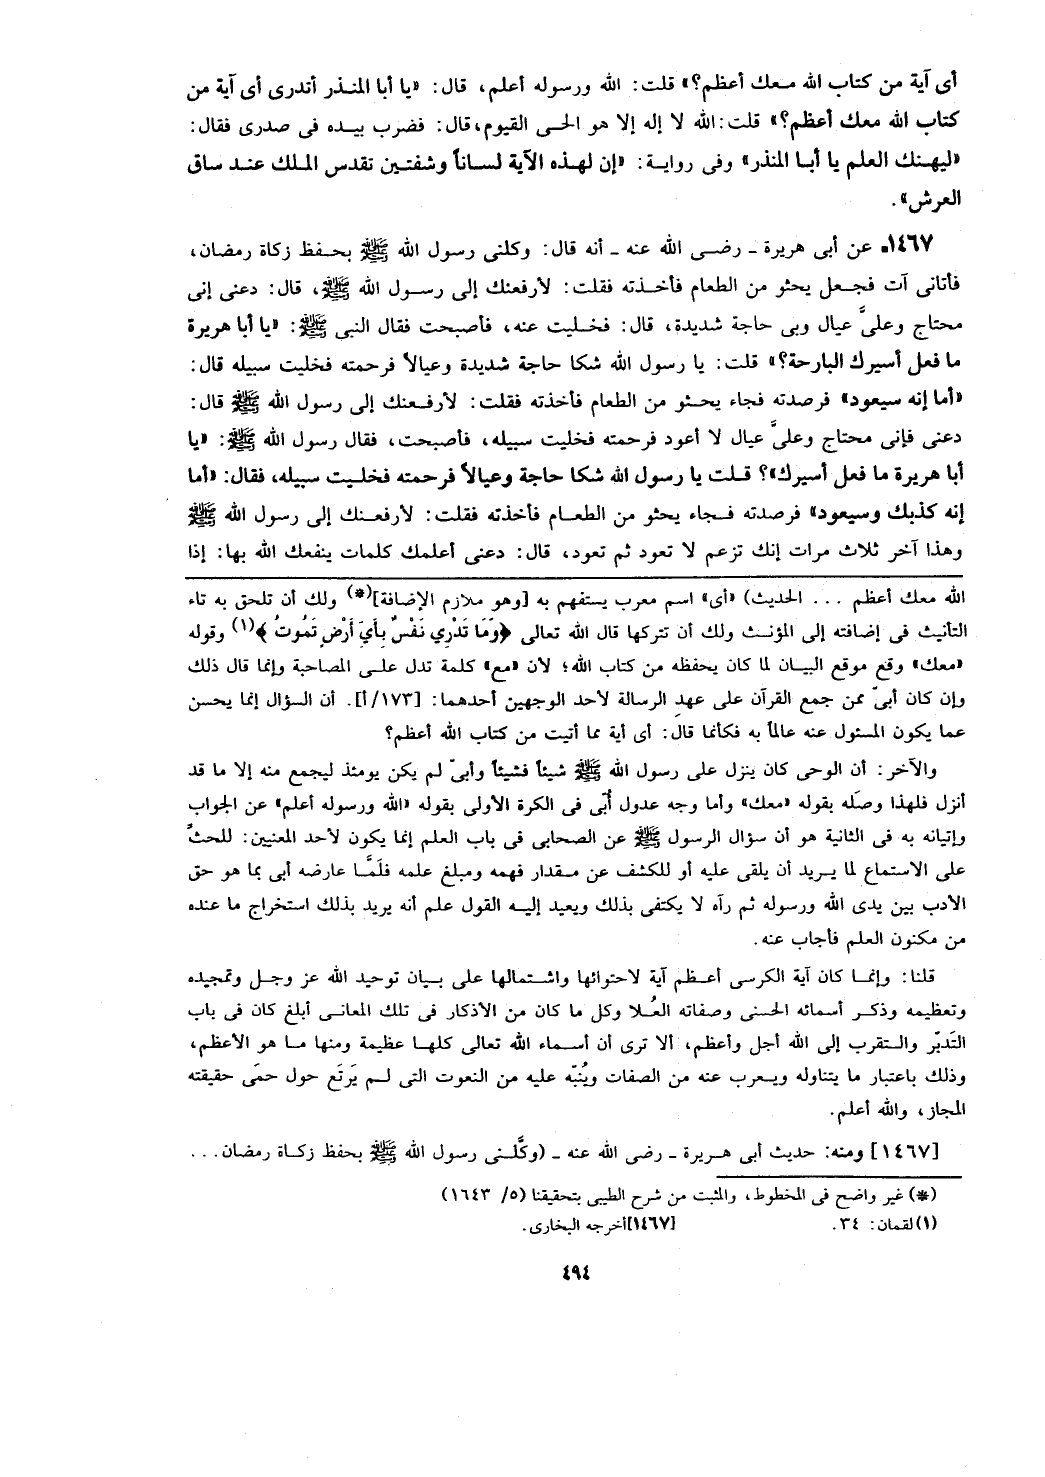 أى آية من كتاب الله معك أعظم؟» قلت: الله ورسوله أعلم، قال: «يا أبا المنذر أتدرى أى آية من
كتاب الله معك أعظم؟» قلت: الله لا إله إلا هو الحى القيوم، قال: فضرب بيده فى صدرى فقال:
«ليهنك العلم يا أبا المنذر» وفى رواية: «إن لهذه الآية لساناً وشفتين تقدس الملك عند ساق
العرش».
١٤٦٧ـ عن أبى هريرة ـ رضى الله عنه ـ أنه قال: وكلنى رسول الله ﷺ بحفظ زكاة رمضان،
فأتانى آت فجعل يحثو من الطعام فأخذته فقلت: لأرفعنك إلى رسول الله ﷺ، قال: دعنى إنى
محتاج وعلىَّ عيال وبى حاجة شديدة، قال: فخليت عنه، فأصبحت فقال النبى ﷺ: «يا أبا هريرة
ما فعل أسيرك البارحة؟» قلت: يا رسول الله شكا حاجة شديدة وعيالاً فرحمته فخليت سبيله قال:
«أما إنه سيعود» فرصدته فجاء يحثو من الطعام فأخذته فقلت: لأرفعنك إلى رسول الله ﷺ قال:
دعنى فإنى محتاج وعلىَّ عيال لا أعود فرحمته فخليت سبيله، فأصبحت، فقال رسول الله ﷺ: «يا
أبا هريرة ما فعل أسيرك»؟ قلت يا رسول الله شكا حاجة وعيالاً فرحمته فخليت سبيله، فقال: «أما
إنه كذبك وسيعود» فرصدته فجاء يحثو من الطعام فأخذته فقلت: لأرفعنك إلى رسول الله ﷺ
وهذا آخر ثلاث مرات إنك تزعم لا تعود ثم تعود، قال: دعنى أعلمك كلمات ينفعك الله بها: إذا
الله معك أعظم ... الحديث) «أى» اسم معرب يستفهم به [وهو ملازم الإضافة](*) ولك أن تلحق به تاء
التأنيث فى إضافته إلى المؤنث ولك أن تتركها قال الله تعالى ﴿وَمَا تَدْرِي نَفْسٌ بِأَيِّ أَرْضٍ تَمُوتُ﴾(١) وقوله
«معك» وقع موقع البيان لما كان يحفظه من كتاب الله؛ لأن «مع» كلمة تدل على المصاحبة وإنما قال ذلك
وإن كان أبىّ ممن جمع القرآن على عهد الرسالة لأحد الوجهين أحدهما: [١٧٣/أ]. أن السؤال إنما يحسن
عما يكون المسئول عنه عالماً به فكأنما قال: أى أية مما أتيت من كتاب الله أعظم؟
والآخر: أن الوحى كان ينزل على رسول الله ﷺ شيئاً فشيئاً وأبىّ لم يكن يومئذ ليجمع منه إلا ما قد
أنزل فلهذا وصله بقوله «معك» وأما وجه عدول أُبى فى الكرة الأولى بقوله «الله ورسوله أعلم» عن الجواب
وإتيانه به فى الثانية هو أن سؤال الرسول ﷺ عن الصحابى فى باب العلم إنما يكون لأحد المعنيين: للحثِّ
على الاستماع لما يريد أن يلقى عليه أو للكشف عن مقدار فهمه ومبلغ علمه فلَمَّا عارضه أبى بما هو حق
الأدب بين يدى الله ورسوله ثم رآه لا يكتفى بذلك ويعيد إليه القول علم أنه يريد بذلك استخراج ما عنده
من مكنون العلم فأجاب عنه.
قلنا: وإنما كان آية الكرسى أعظم آية لاحتوائها واشتمالها على بيان توحيد الله عز وجل وتمجيده
وتعظيمه وذكر أسمائه الحسنى وصفاته العُلا وكل ما كان من الأذكار فى تلك المعانى أبلغ كان فى باب
التَدبّر والتقرب إلى الله أجل وأعظم، ألا ترى أن أسماء الله تعالى كلها عظيمة ومنها ما هو الأعظم،
وذلك باعتبار ما يتناوله ويعرب عنه من الصفات ويُنبّه عليه من النعوت التى لم يَرتَع حول حمَى حقيقته
المجاز، والله أعلم.
[١٤٦٧] ومنه: حديث أبى هريرة ـ رضى الله عنه ـ (وكَّلنى رسول الله ﷺ بحفظ زكاة رمضان...
(*) غير واضح فى المخطوط، والمثبت من شرح الطيبى بتحقيقنا (٥/ ١٦٤٣)
(١) لقمان: ٣٤. [١٤٦٧] أخرجه البخارى.
٤٩٤